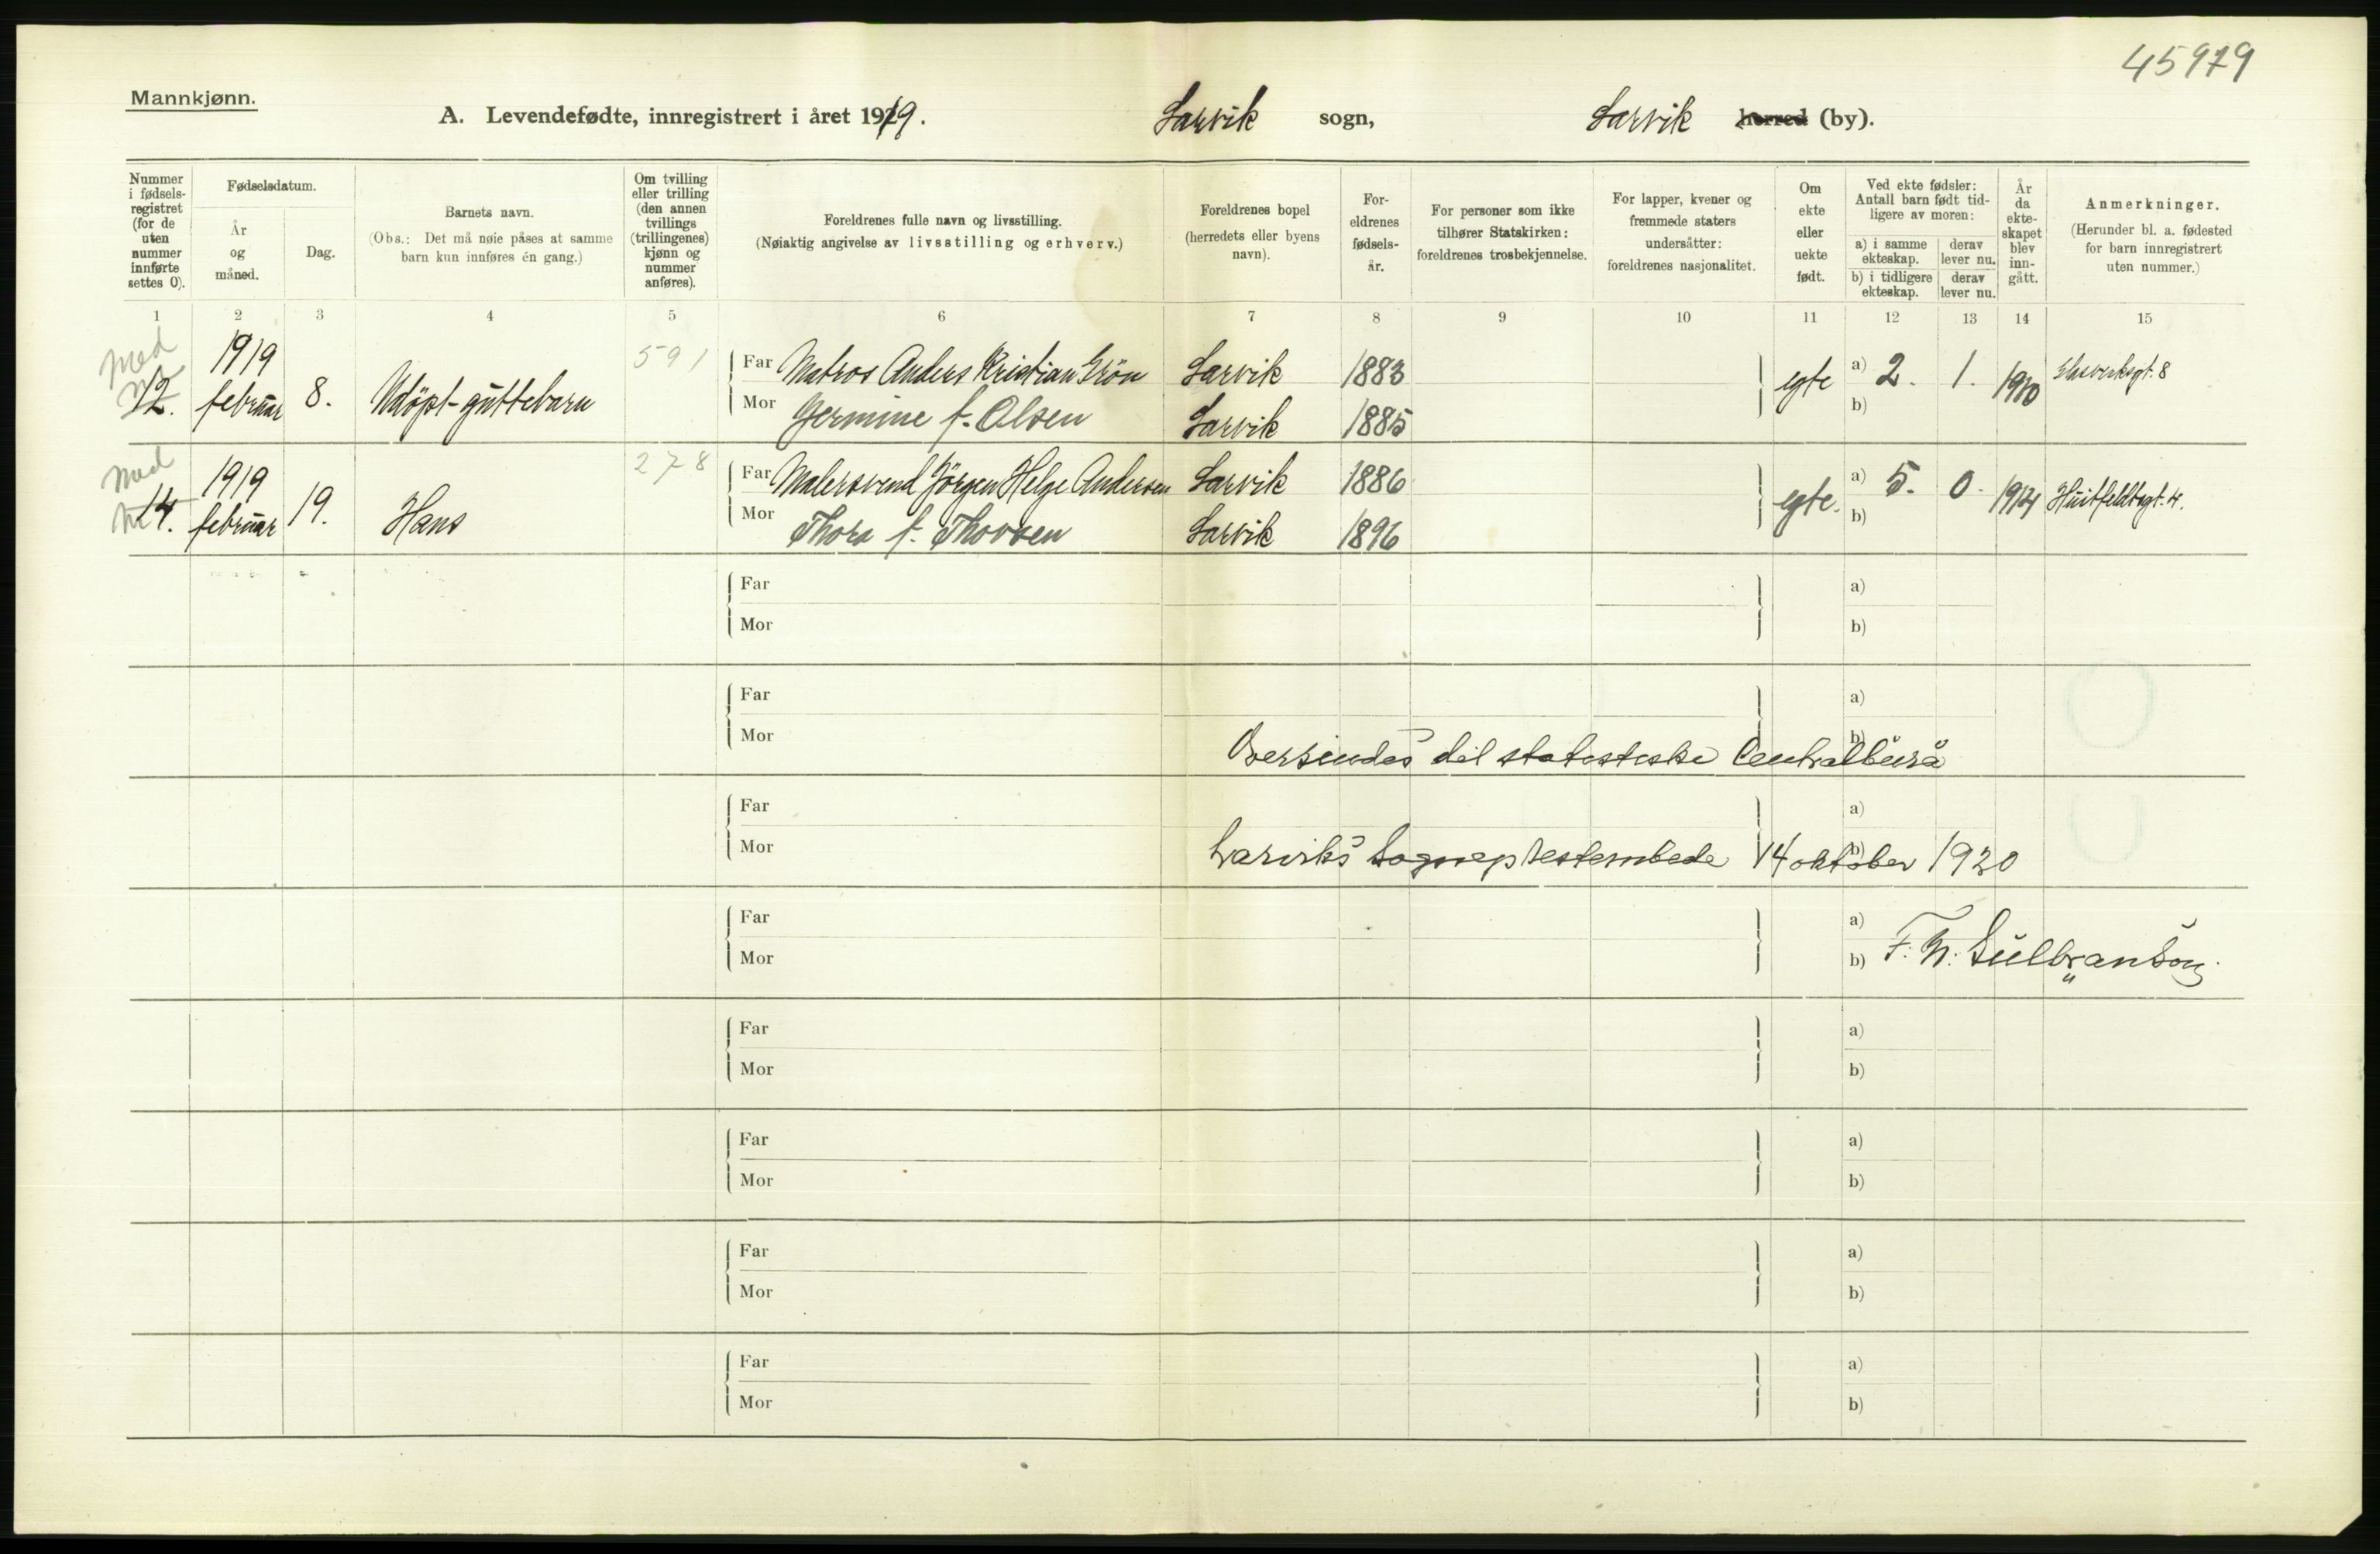 45979
Mannkjønn.
A. Levendefødte, innregistrert i året 1919. Larvik sogn, Larvik herred (by).
Nummer i fødsels-registret (for de uten nummer innførte settes 0).
Fødselsdatum.
År og måned.
Dag.
Barnets navn.
(Obs.: Det må nøie påses at samme barn kun innføres én gang.)
Om tvilling eller trilling (den annen tvillings (trillingenes) kjønn og nummer anføres).
Foreldrenes fulle navn og livsstilling.
(Nøiaktig angivelse av livsstilling og erhverv.)
Foreldrenes bopel (herredets eller byens navn).
For-eldrenes fødsels-år.
For personer som ikke tilhører Statskirken: foreldrenes trosbekjennelse.
For lapper, kvener og fremmede staters undersåtter: foreldrenes nasjonalitet.
Om ekte eller uekte født.
Ved ekte fødsler: Antall barn født tid-ligere av moren:
a) i samme ekteskap. derav lever nu.
b) i tidligere ekteskap. derav lever nu.
År da ekte-skapet blev inn-gått.
Anmerkninger.
(Herunder bl. a. fødested for barn innregistrert uten nummer.)
1 2 3 4 5 6 7 8 9 10 11 12 13 14 15
Med 1919 591 Far Matros Anders Kristian Grön Larvik 1883 egte a) 2. 1. 1910
12. februar 8. Udöpt guttebarn Mor Germine f. Olsen Larvik 1885 b)
Med 1919 278 Far Malersvend Jörgen Helge Andersen Larvik 1886 egte. a) 5. 0. 1914 Huitfeldtsgt. 4.
14. februar 19. Hans Mor Thora f. Thovsen Larvik 1896 b)
Far a)
Mor b)
Far a)
Mor b)
Oversendes det statistiske Centralburå
Far a)
Mor b)
Larviks Sogneprestembede 14 oktober 1920
Far a)
Mor b)
F. N. Gulbranson
Far a)
Mor b)
Far a)
Mor b)
Far a)
Mor b)
Far a)
Mor b)